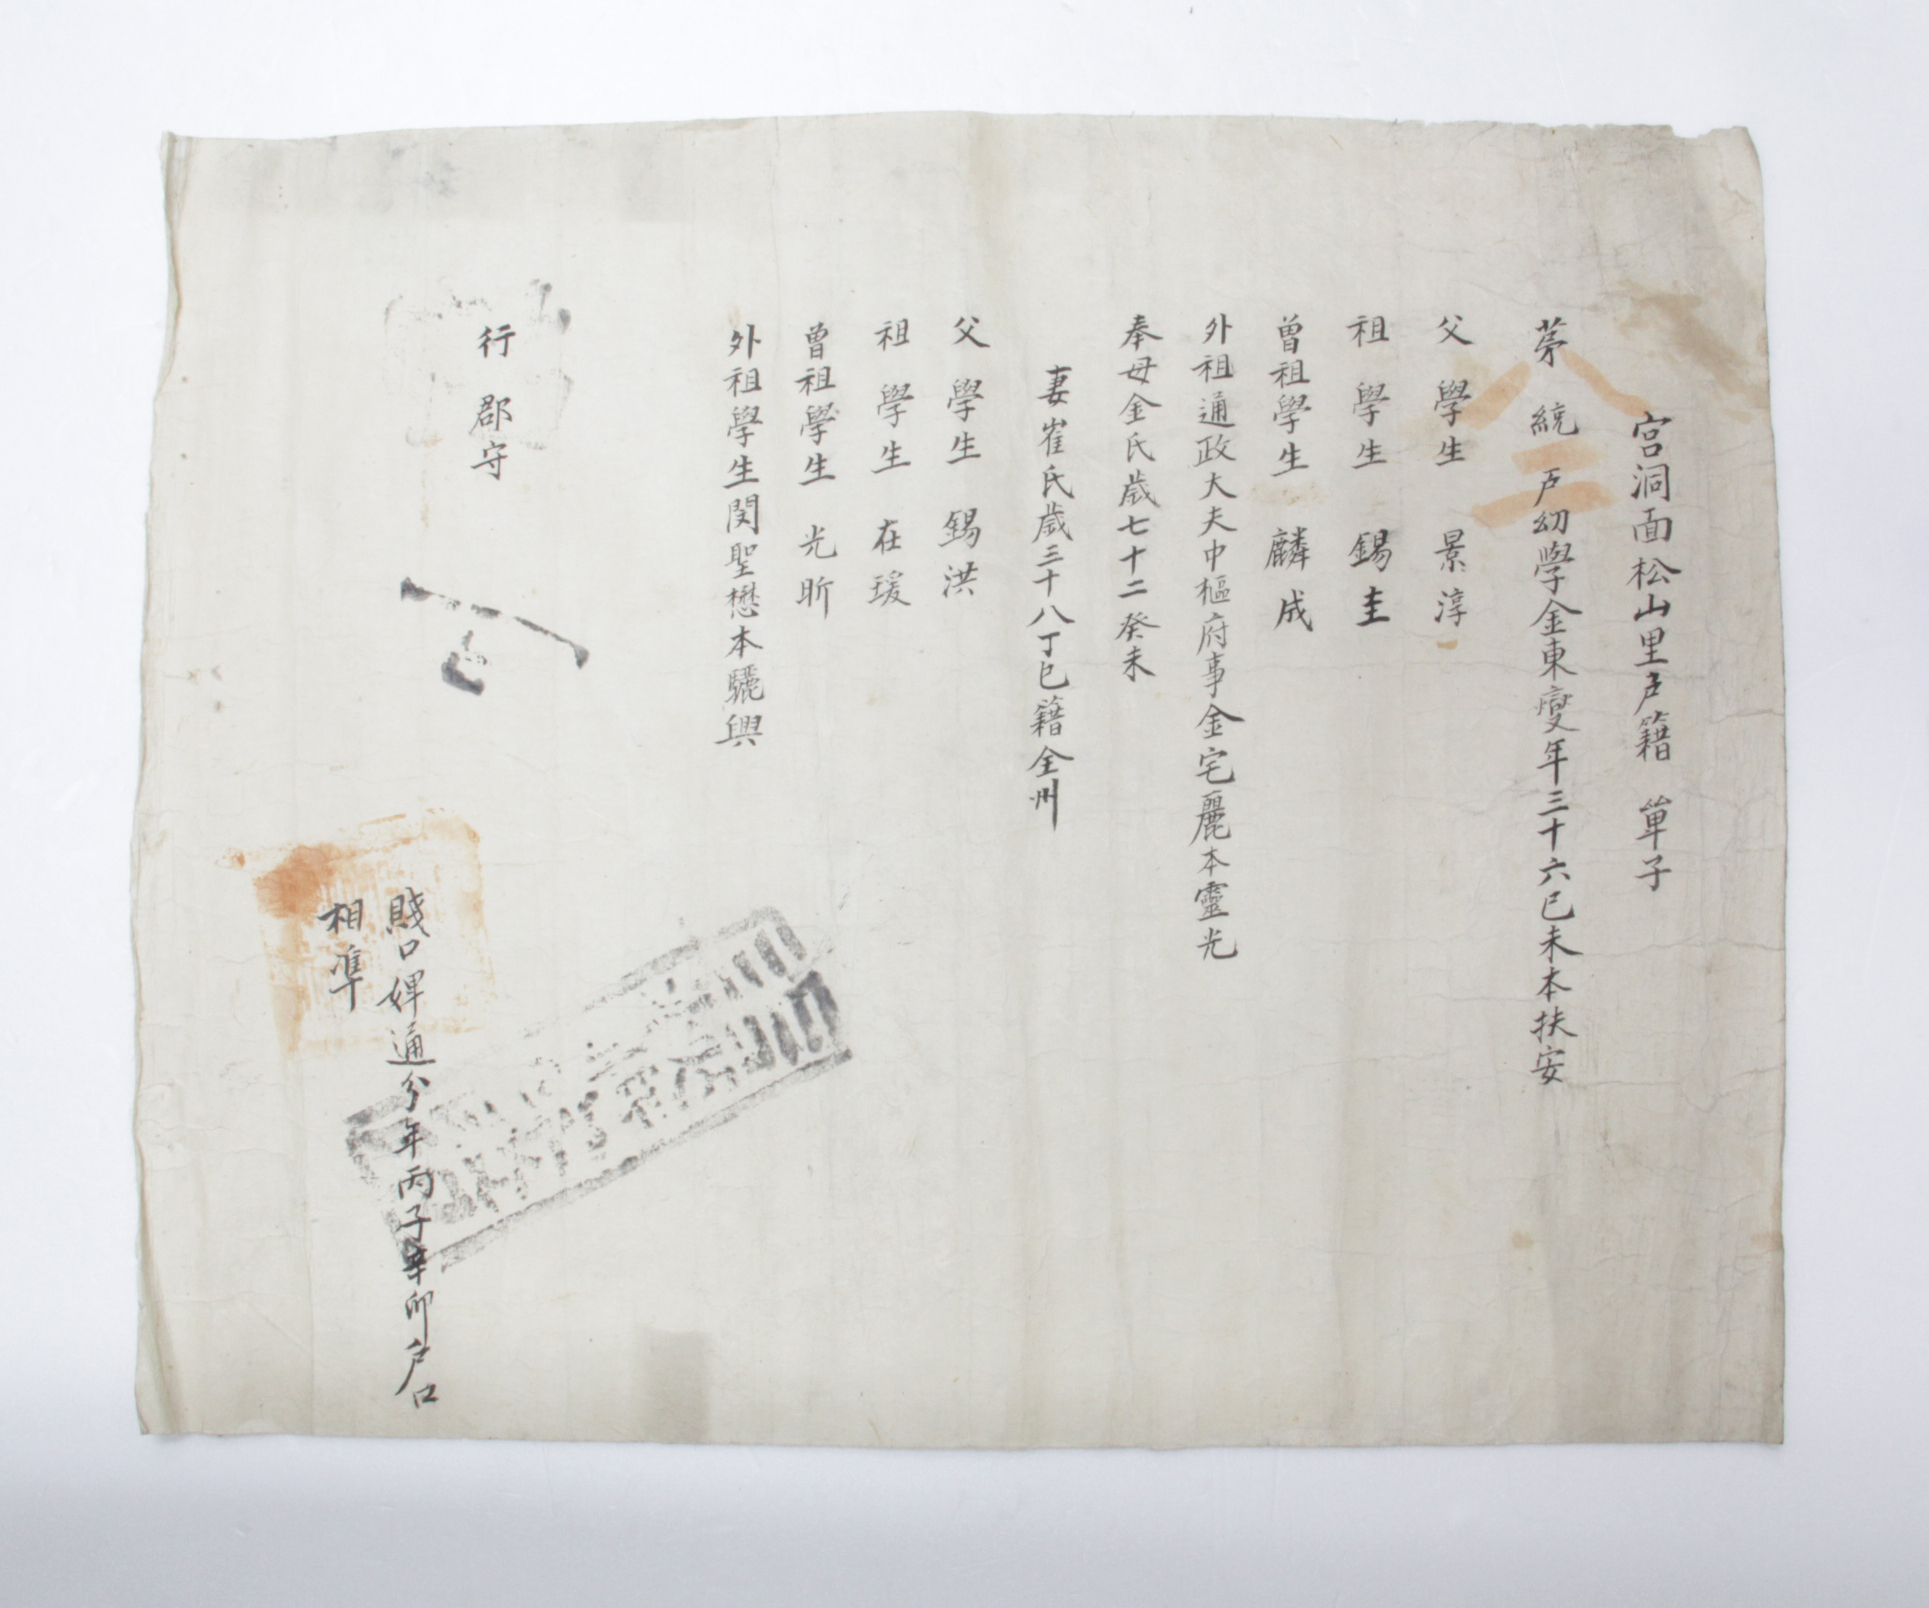 宮洞面松山里戶籍 單子
茅八統二戶幼學金東燮年三十六己未本扶安
父 學生 景淳
祖 學生 錫圭
曾祖學生 麟成
外祖通政大夫中樞府事金宅麗本靈光
奉母金氏歲七十二癸未
妻崔氏歲三十八丁巳籍全州
父 學生 錫洪
祖 學生 在瑗
曾祖學生 光昕
外祖學生閔聖懋本驪興
行 郡守
賤口婢通分年丙子辛卯戶口
相準